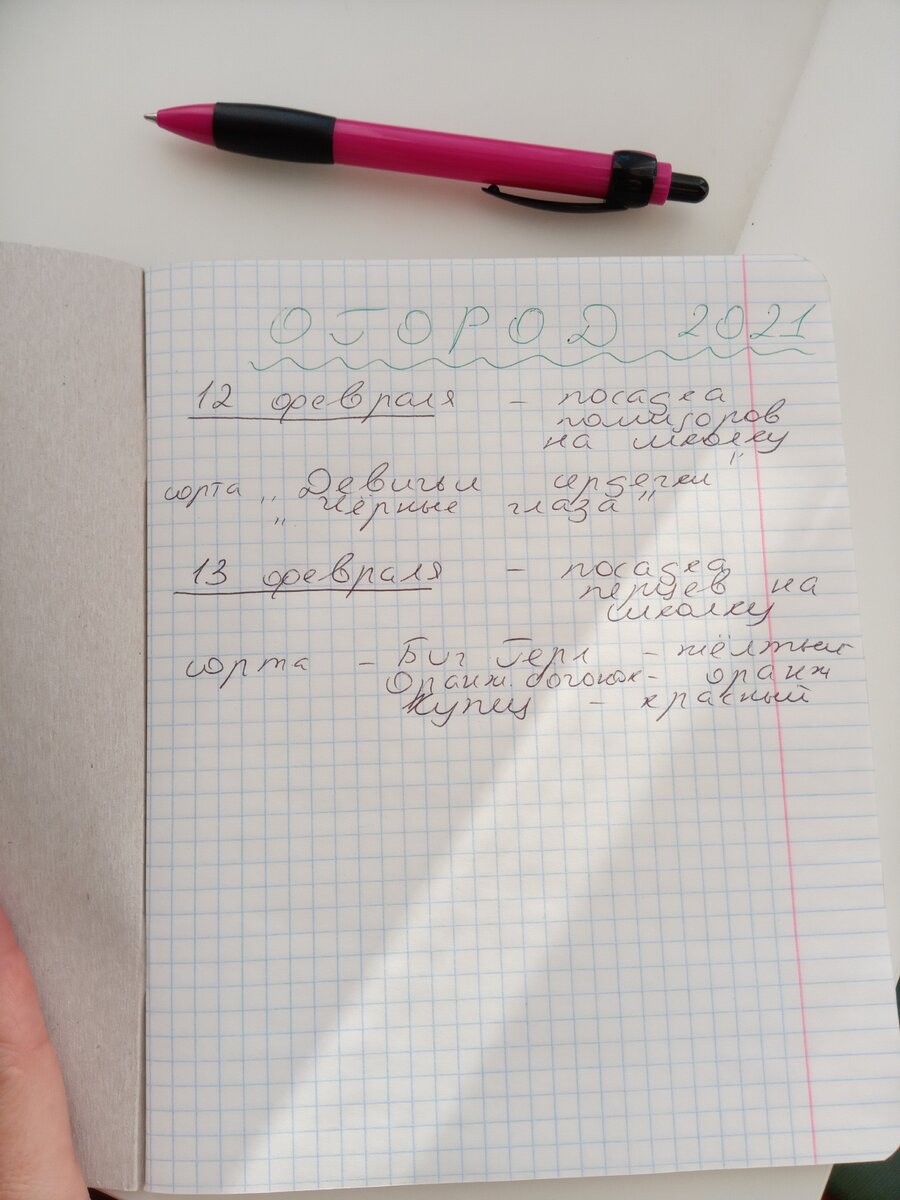 ОГОРОД 2021
12 февраля - посадка
помидоров
на школку
сорта „Девичьи сердечки"
„Чёрные глаза"
13 февраля - посадка
перцев на
школку
сорта - Биг Герл - жёлтый
Оранж. - оранж
Купец - красный